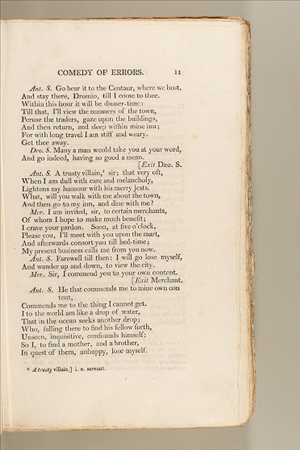 COMEDY OF ERRORS. 11
Ant. S. Go bear it to the Centaur, where we host,
And stay there, Dromio, till I come to thee.
Within this hour it will be dinner-time:
Till that, I'll view the manners of the town,
Peruse the traders, gaze upon the buildings,
And then return, and sleep within mine inn;
For with long travel I am stiff and weary.
Get thee away.
Dro. S. Many a man would take you at your word,
And go indeed, having so good a mean.
[Exit Dro. S.
Ant. S. A trusty villain,* sir; that very oft,
When I am dull with care and melancholy,
Lightens my humour with his merry jests.
What, will you walk with me about the town,
And then go to my inn, and dine with me?
Mer. I am invited, sir, to certain merchants,
Of whom I hope to make much benefit;
I crave your pardon. Soon, at five o'clock,
Please you, I'll meet with you upon the mart,
And afterwards consort you till bed-time;
My present business calls me from you now.
Ant. S. Farewell till then: I will go lose myself,
And wander up and down, to view the city.
Mer. Sir, I commend you to your own content.
[Exit Merchant.
Ant. S. He that commends me to mine own con
tent,
Commends me to the thing I cannot get.
I to the world am like a drop of water,
That in the ocean seeks another drop;
Who, falling there to find his fellow forth,
Unseen, inquisitive, confounds himself:
So I, to find a mother, and a brother,
In quest of them, unhappy, lose myself.
* A trusty villain,] i. e. servant.